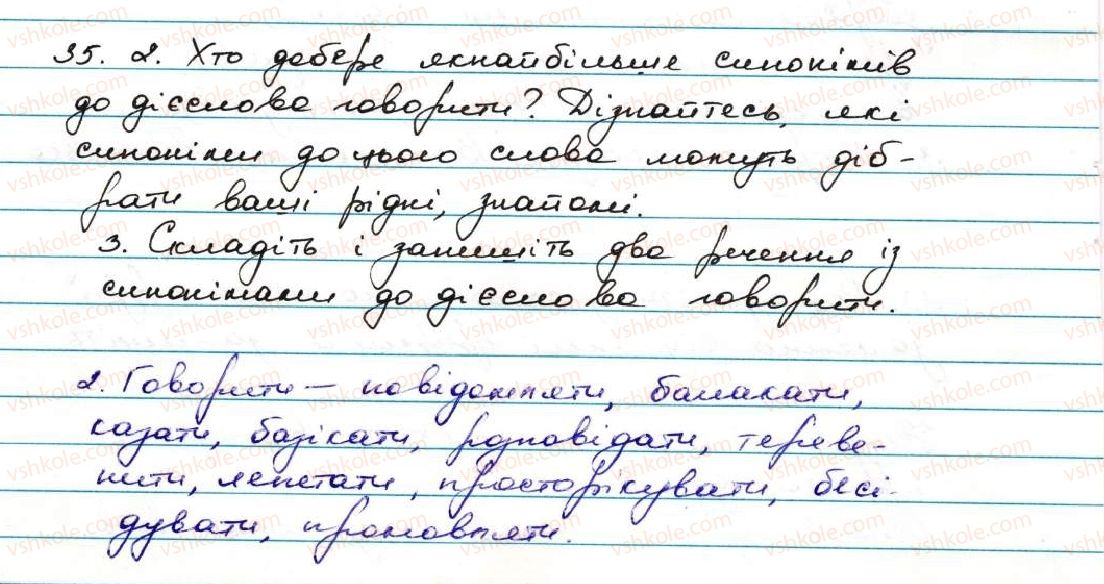 35. 2. Хто добере якнайбільше синонімів
до дієслова говорити? Дізнайтесь, які
синоніми до цього слова можуть діб-
рати ваші рідні, знайомі.
3. Складіть і запишіть два речення із
синонімами до дієслова говорити.
2. Говорити – повідомляти, балакати,
казати, базікати, розповідати, тереве-
нити, лепетати, просторікувати, бесі-
дувати, промовляти.